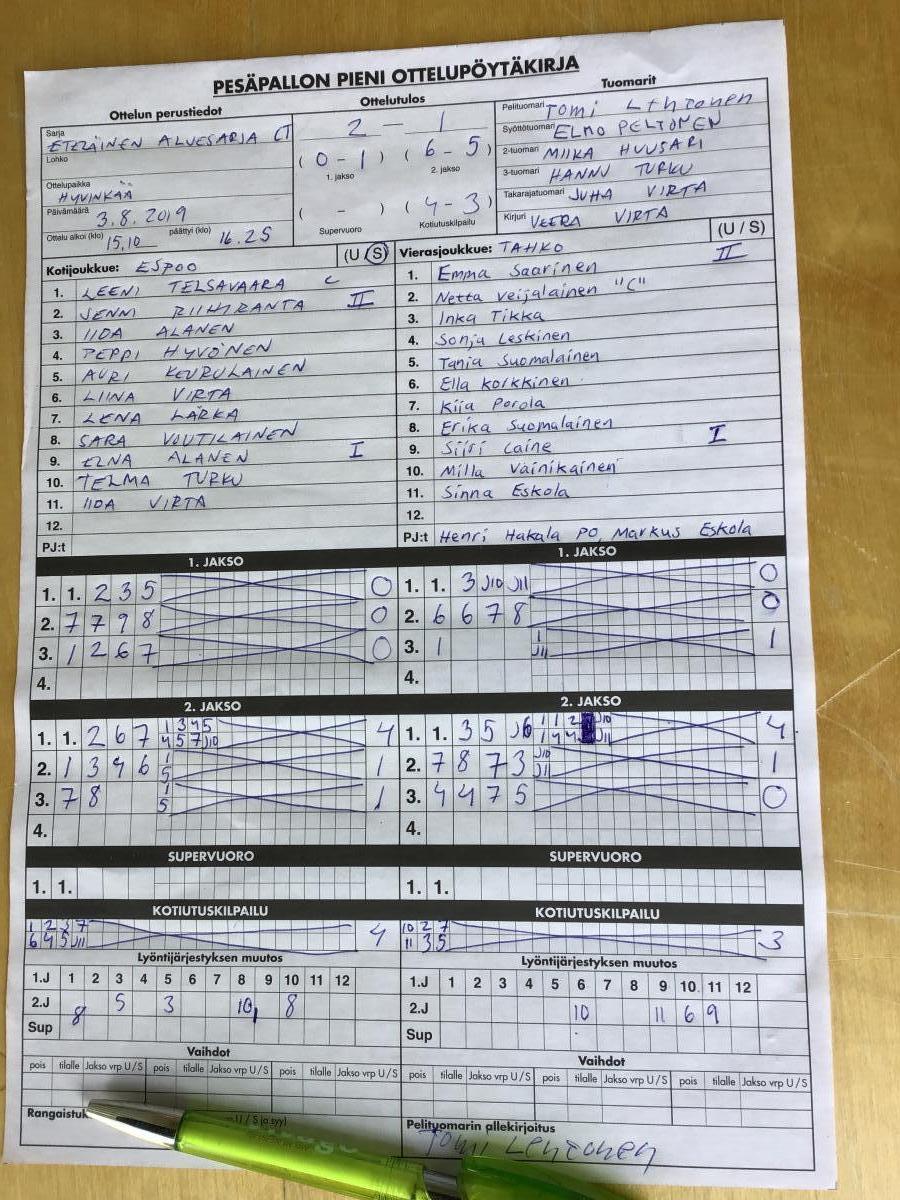 PESÄPALLON PIENI OTTELUPÖYTÄKIRJA
Ottelun perustiedot
Sarja
ETELÄINEN ALUESARJA CT
Lohko
Ottelupaikka
HYVINKÄÄ
Päivämäärä
3.8.2019
Ottelu alkoi (klo) 15,10 päättyi (klo) 16.25
Ottelutulos
2 - 1
( 0 - 1 ) ( 6 - 5 )
1. jakso 2. jakso
( - ) ( 4 - 3 )
Supervuoro Kotiutuskilpailu
Tuomarit
Pelituomari TOMI LEHTONEN
Syöttötuomari ELMO PELTONEN
2-tuomari MIIKA HUUSARI
3-tuomari HANNU TURKU
Takarajatuomari JUHA VIRTA
Kirjuri VEERA VIRTA
Kotijoukkue: ESPOO (U / S)
1. LEENI TELSAVAARA C
2. JENNI RIIHIRANTA II
3. IIDA ALANEN
4. PEPPI HYVÖNEN
5. AURI KEURULAINEN
6. LIINA VIRTA
7. LENA LÄRKA
8. SARA VOUTILAINEN
9. ELNA ALANEN I
10. TELMA TURKU
11. IIDA VIRTA
12.
PJ:t
Vierasjoukkue: TAHKO (U / S)
II
1. Emma Saarinen
2. Netta Veijalainen "C"
3. Inka Tikka
4. Sonja Leskinen
5. Tanja Suomalainen
6. Ella Korkkinen
7. Kiia Porola
8. Erika Suomalainen
9. Siiri Laine I
10. Milla Vainikainen
11. Sinna Eskola
12.
PJ:t Henri Hakala PO, Markus Eskola
1. JAKSO
1. 1. 2 3 5 0
2. 7 7 9 8 0
3. 1 2 6 7 0
4.
1. JAKSO
1. 1. 3 J10 J11 0
2. 6 6 7 8 0
3. 1 1 J11 1
4.
2. JAKSO
1. 1. 2 6 7 1 3 4 5 4
4 5 7 J10
2. 1 3 4 6 1 5 1
3. 7 8 1 5 1
4.
2. JAKSO
1. 1. 3 5 J6 1 1 2 J10 4
1 4 4 J11
2. 7 8 7 3 J10 J11 1
3. 4 4 7 5 0
4.
SUPERVUORO
1. 1.
SUPERVUORO
1. 1.
KOTIUTUSKILPAILU
1 2 3 7 4
6 4 5 J11
KOTIUTUSKILPAILU
10 2 7 3
11 3 5
Lyöntijärjestyksen muutos
1.J 1 2 3 4 5 6 7 8 9 10 11 12
2.J 8 5 3 10 8
Sup
Lyöntijärjestyksen muutos
1.J 1 2 3 4 5 6 7 8 9 10 11 12
2.J 10 11 6 9
Sup
Vaihdot
pois tilalle Jakso vrp U / S pois tilalle Jakso vrp U / S pois tilalle Jakso vrp U / S
Vaihdot
pois tilalle Jakso vrp U / S pois tilalle Jakso vrp U / S pois tilalle Jakso vrp U / S
U / S ja syy)
Pelituomarin allekirjoitus
Tomi Lehtonen